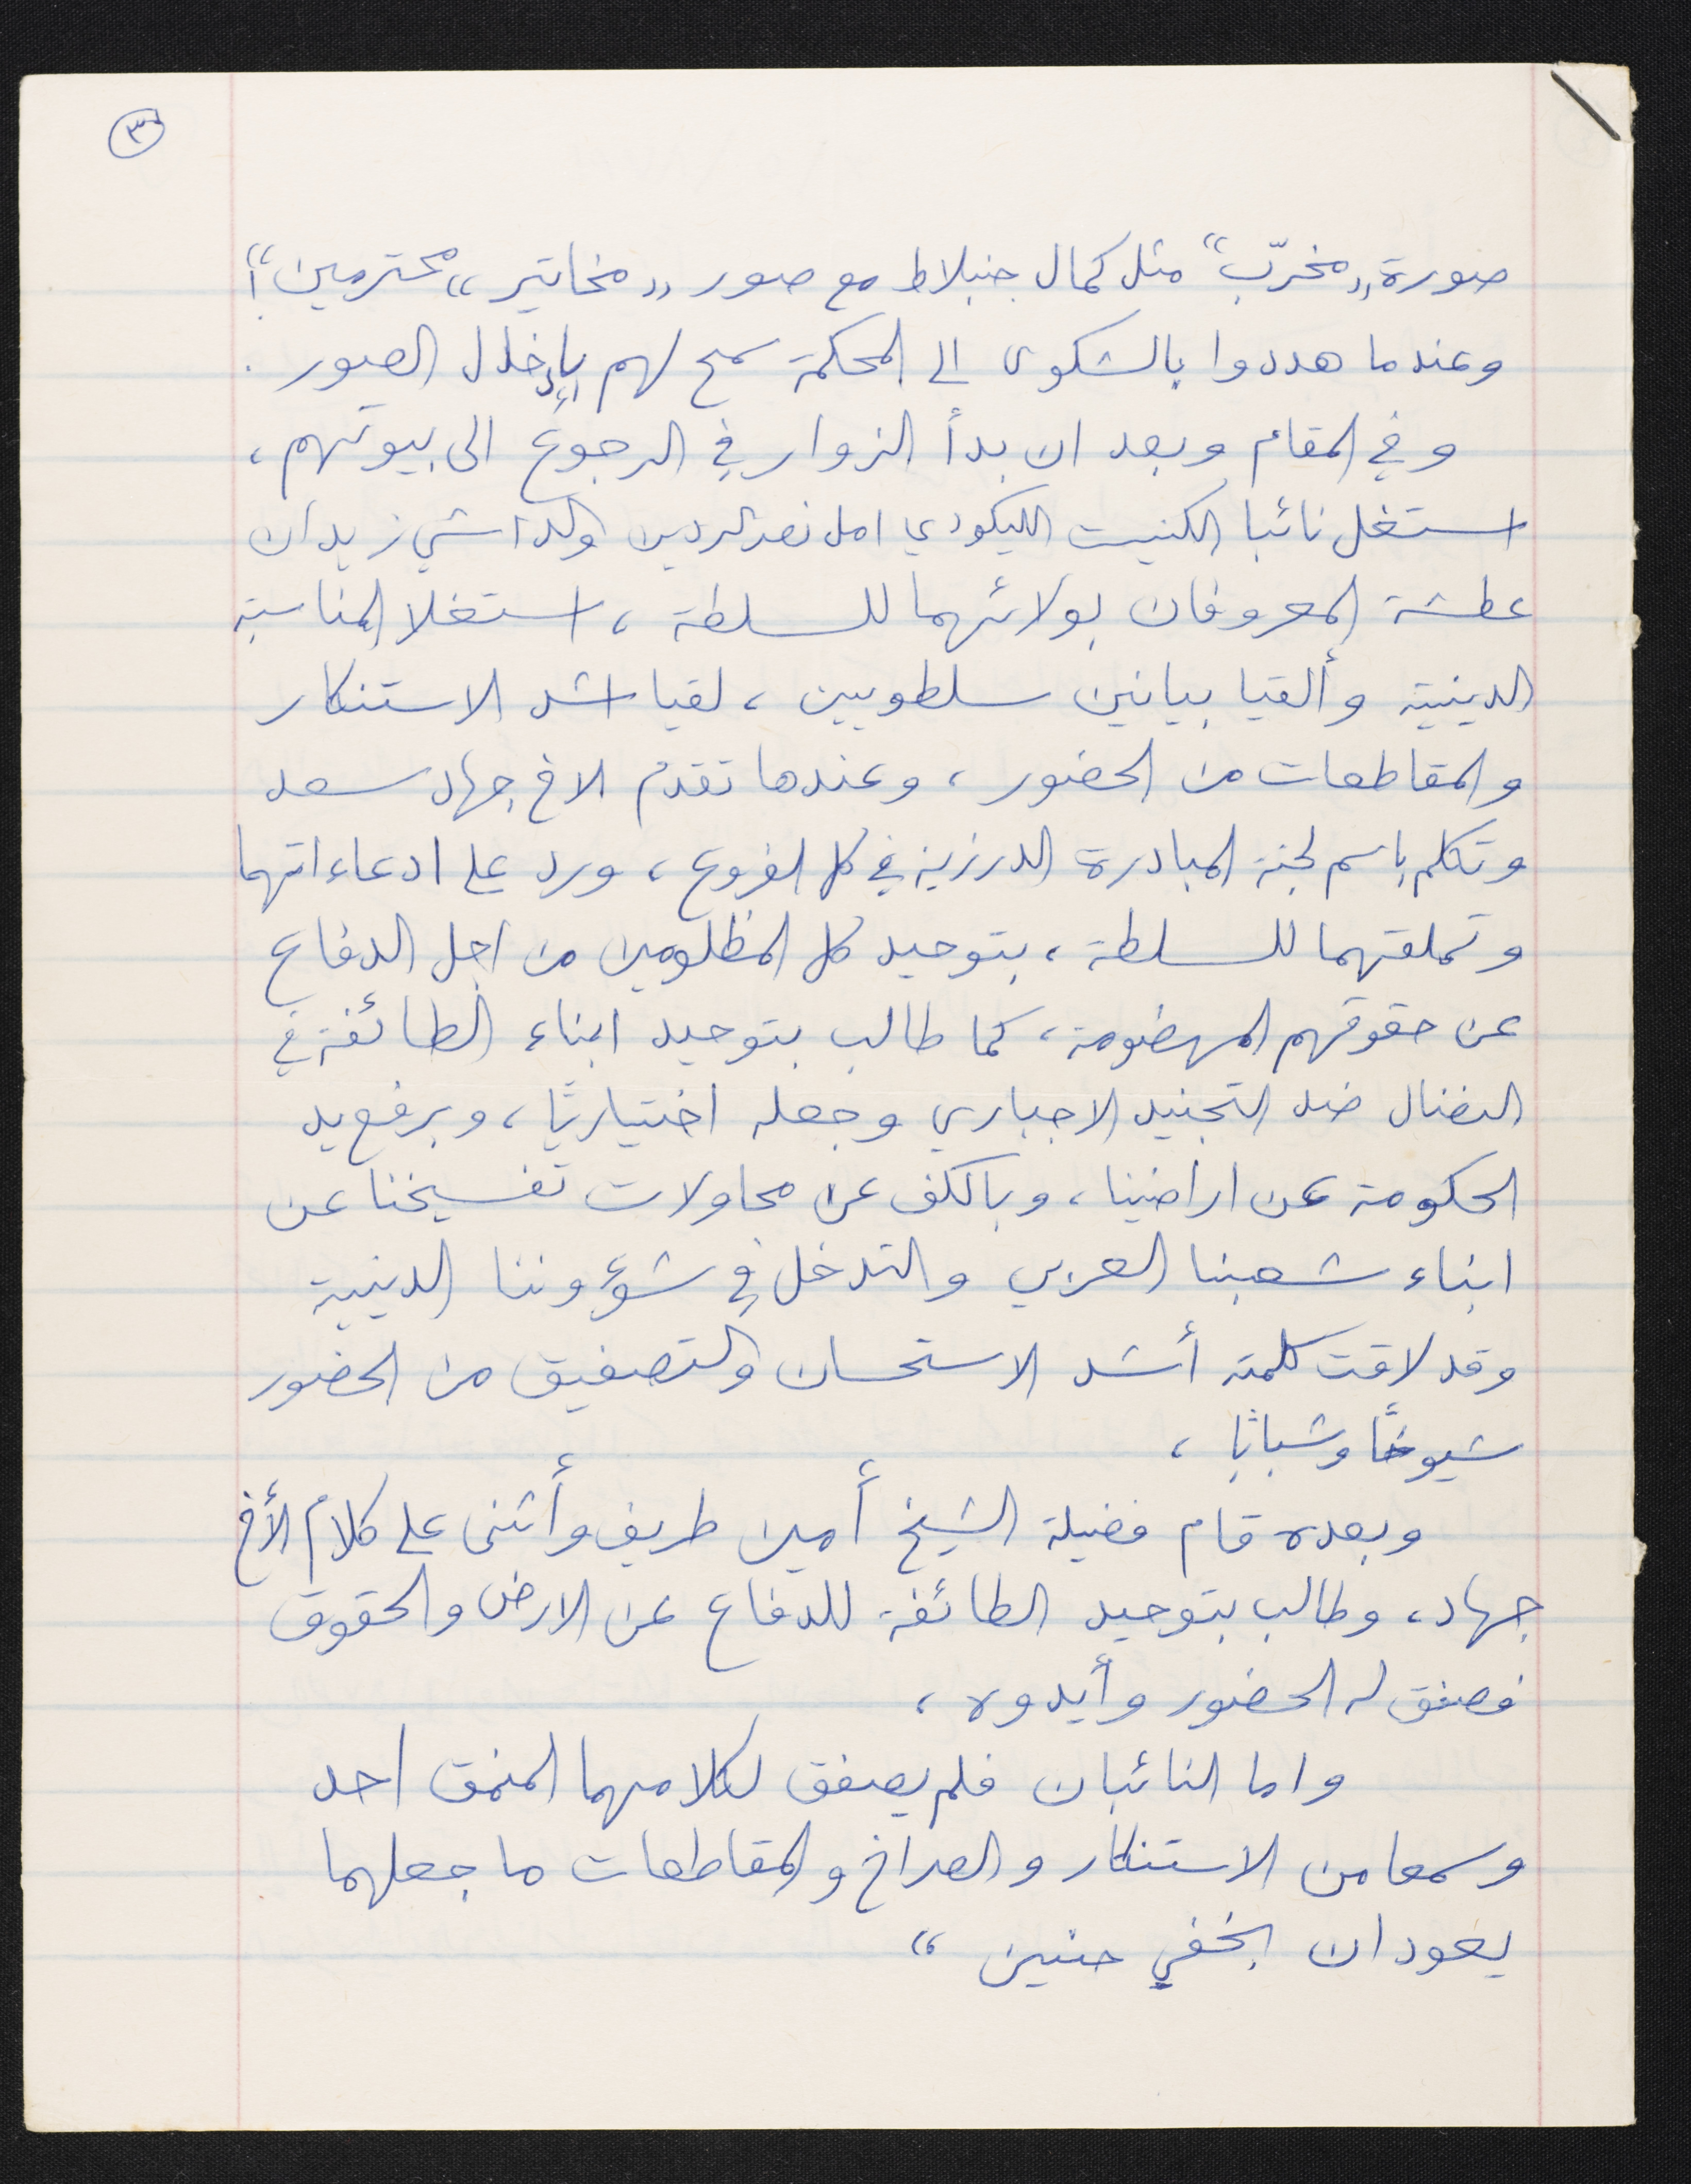 ٣
صورة „مخرّب“ مثل كمال جنبلاط مع صور „مخاتير“ محترمين“!
وعندما هددوا بالشكوى الى المحكمة سمح لهم بإدخال الصور .
وفي المقام وبعد ان بدأ الزوار في الرجوع الى بيوتهم ،
استغل نائبا الكنيست الليكودي امل نصرالدين والداشي زيدان
عطشة المعروفان بولائهما للسلطة ، استغلا المناسبة
الدينية وألقيا بيانين سلطويين ، لقيا اشد الاستنكار
والمقاطعات من الحضور ، وعندها تقدم الاخ جهاد سعد
وتكلم باسم لجنة المبادرة الدرزية في كل الفروع ، ورد على ادعاءاتهما
وتملقهما للسلطة ، بتوحيد كل المظلومين من اجل الدفاع
عن حقوقهم المهضومة ، كما طالب بتوحيد ابناء الطائفة في
النضال ضد التجنيد الاجباري وجعله اختياريًا ، وبرفع يد
الحكومة عن اراضينا ، وبالكف عن محاولات تفسيخنا عن
ابناء شعبنا العربي والتدخل في شؤوننا الدينية
وقد لاقت كلمته أشد الاستحسان والتصفيق من الحضور
شيوخًا وشبابًا ،
وبعده قام فضيلة الشيخ أمين طريف وأثنى على كلام الأخ
جهاد ، وطالب بتوحيد الطائفة للدفاع عن الارض والحقوق
فصفق له الحضور وأيدوه ،
واما النائبان فلم يصفق لكلامهما المنمق احد
وسمعا من الاستنكار والصراخ والمقاطعات ما جعلهما
يعودان بخفي حنين “